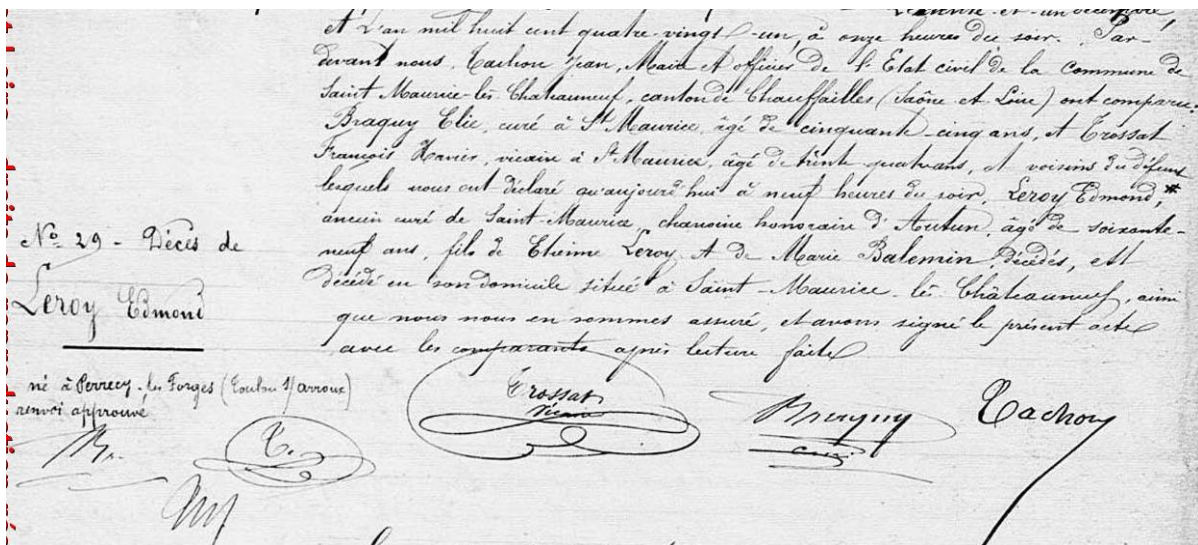 trente-et-un décembre,
et L'an mil huit cent quatre-vingt-un, à onze heures du soir. Par-
devant nous, Tachon Jean, Maire et officier de l'Etat civil de la Commune de
Saint Maurice-lès-Chateauneuf, canton de Chauffailles (Saône et Loire) ont comparu:
Braguy Elie, curé à St Maurice, âgé de cinquante-cinq ans, et Trossat
François Xavier, vicaire à St Maurice, âgé de trente quatre ans, et voisins du défunt
lesquels nous ont déclaré qu'aujourd'hui à neuf heures du soir, Leroy Edmond,*
ancien curé de Saint-Maurice, chanoine honoraire d'Autun, âgé de soixante-
neuf ans, fils de Etienne Leroy et de Marie Balemin, décédés, est
décédé en son domicile situé à Saint-Maurice-lès-Châteauneuf, ainsi
que nous nous en sommes assuré, et avons signé le présent acte
avec les comparants après lecture faite
No 29 - Décès de
Leroy Edmond
né à Perrecy-les-Forges (Toulon s/ Arroux)
renvoi approuvé
Br. T.
Trossat
vicaire
Braguy
curé
Tachon